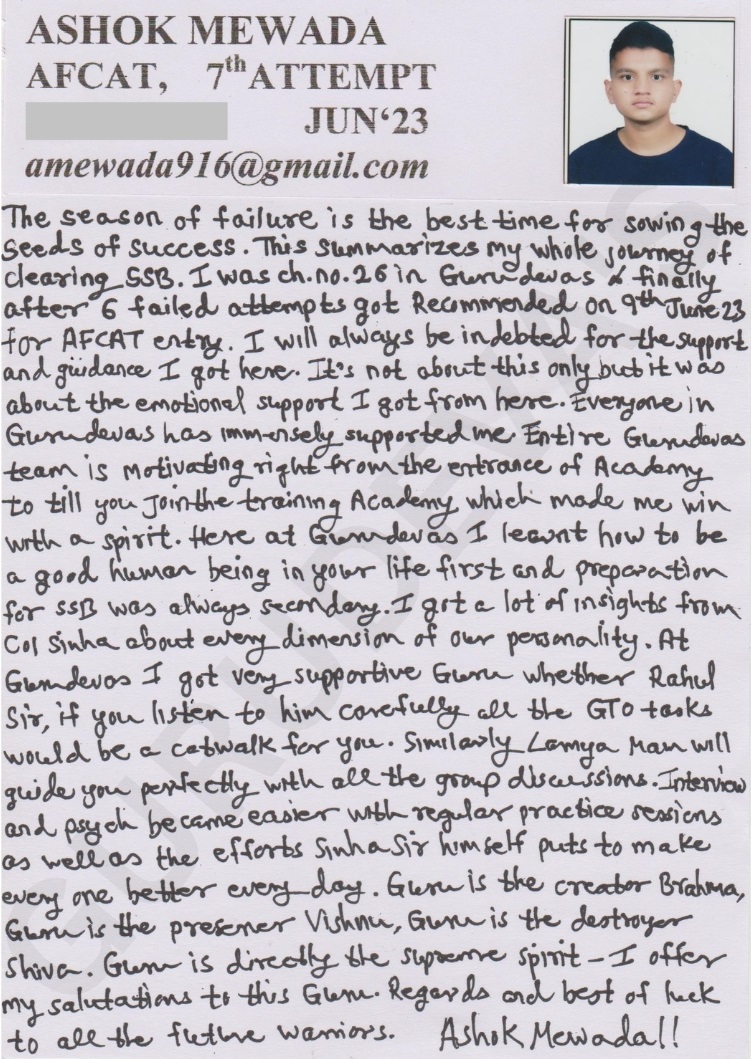 ASHOK MEWADA
AFCAT, 7th ATTEMPT
JUN‘23
amewada916@gmail.com
The season of failure is the best time for sowing the
seeds of success. This summarizes my whole journey of
clearing SSB. I was ch.no.26 in Gurudevas & finally
after 6 failed attempts got Recommended on 9th June 23
for AFCAT entry. I will always be indebted for the support
and guidance I got here. It's not about this only but it was
about the emotional support I got from here. Everyone in
Gurudevas has immensely supported me. Entire Gurudevas
team is motivating right from the entrance of Academy
to till you join the training Academy which made me win
with a spirit. Here at Gurudevas I learnt how to be
a good human being in your life first and preparation
for SSB was always secondary. I got a lot of insights from
Col Sinha about every dimension of our personality. At
Gurudevas I got very supportive Guru whether Rahul
Sir, if you listen to him carefully all the GTO tasks
would be a catwalk for you. Similarly Lamya Mam will
guide you perfectly with all the group discussions. Interview
and psych became easier with regular practice sessions
as well as the efforts Sinha Sir himself puts to make
every one better every day. Guru is the creator Brahma,
Guru is the preserver Vishnu, Guru is the destroyer
Shiva. Guru is directly the supreme spirit – I offer
my salutations to this Guru. Regards and best of luck
to all the future warriors. Ashok Mewada!!
GURUDEVAS